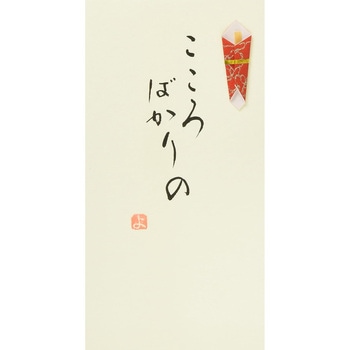 こころ
ばかりの
よ